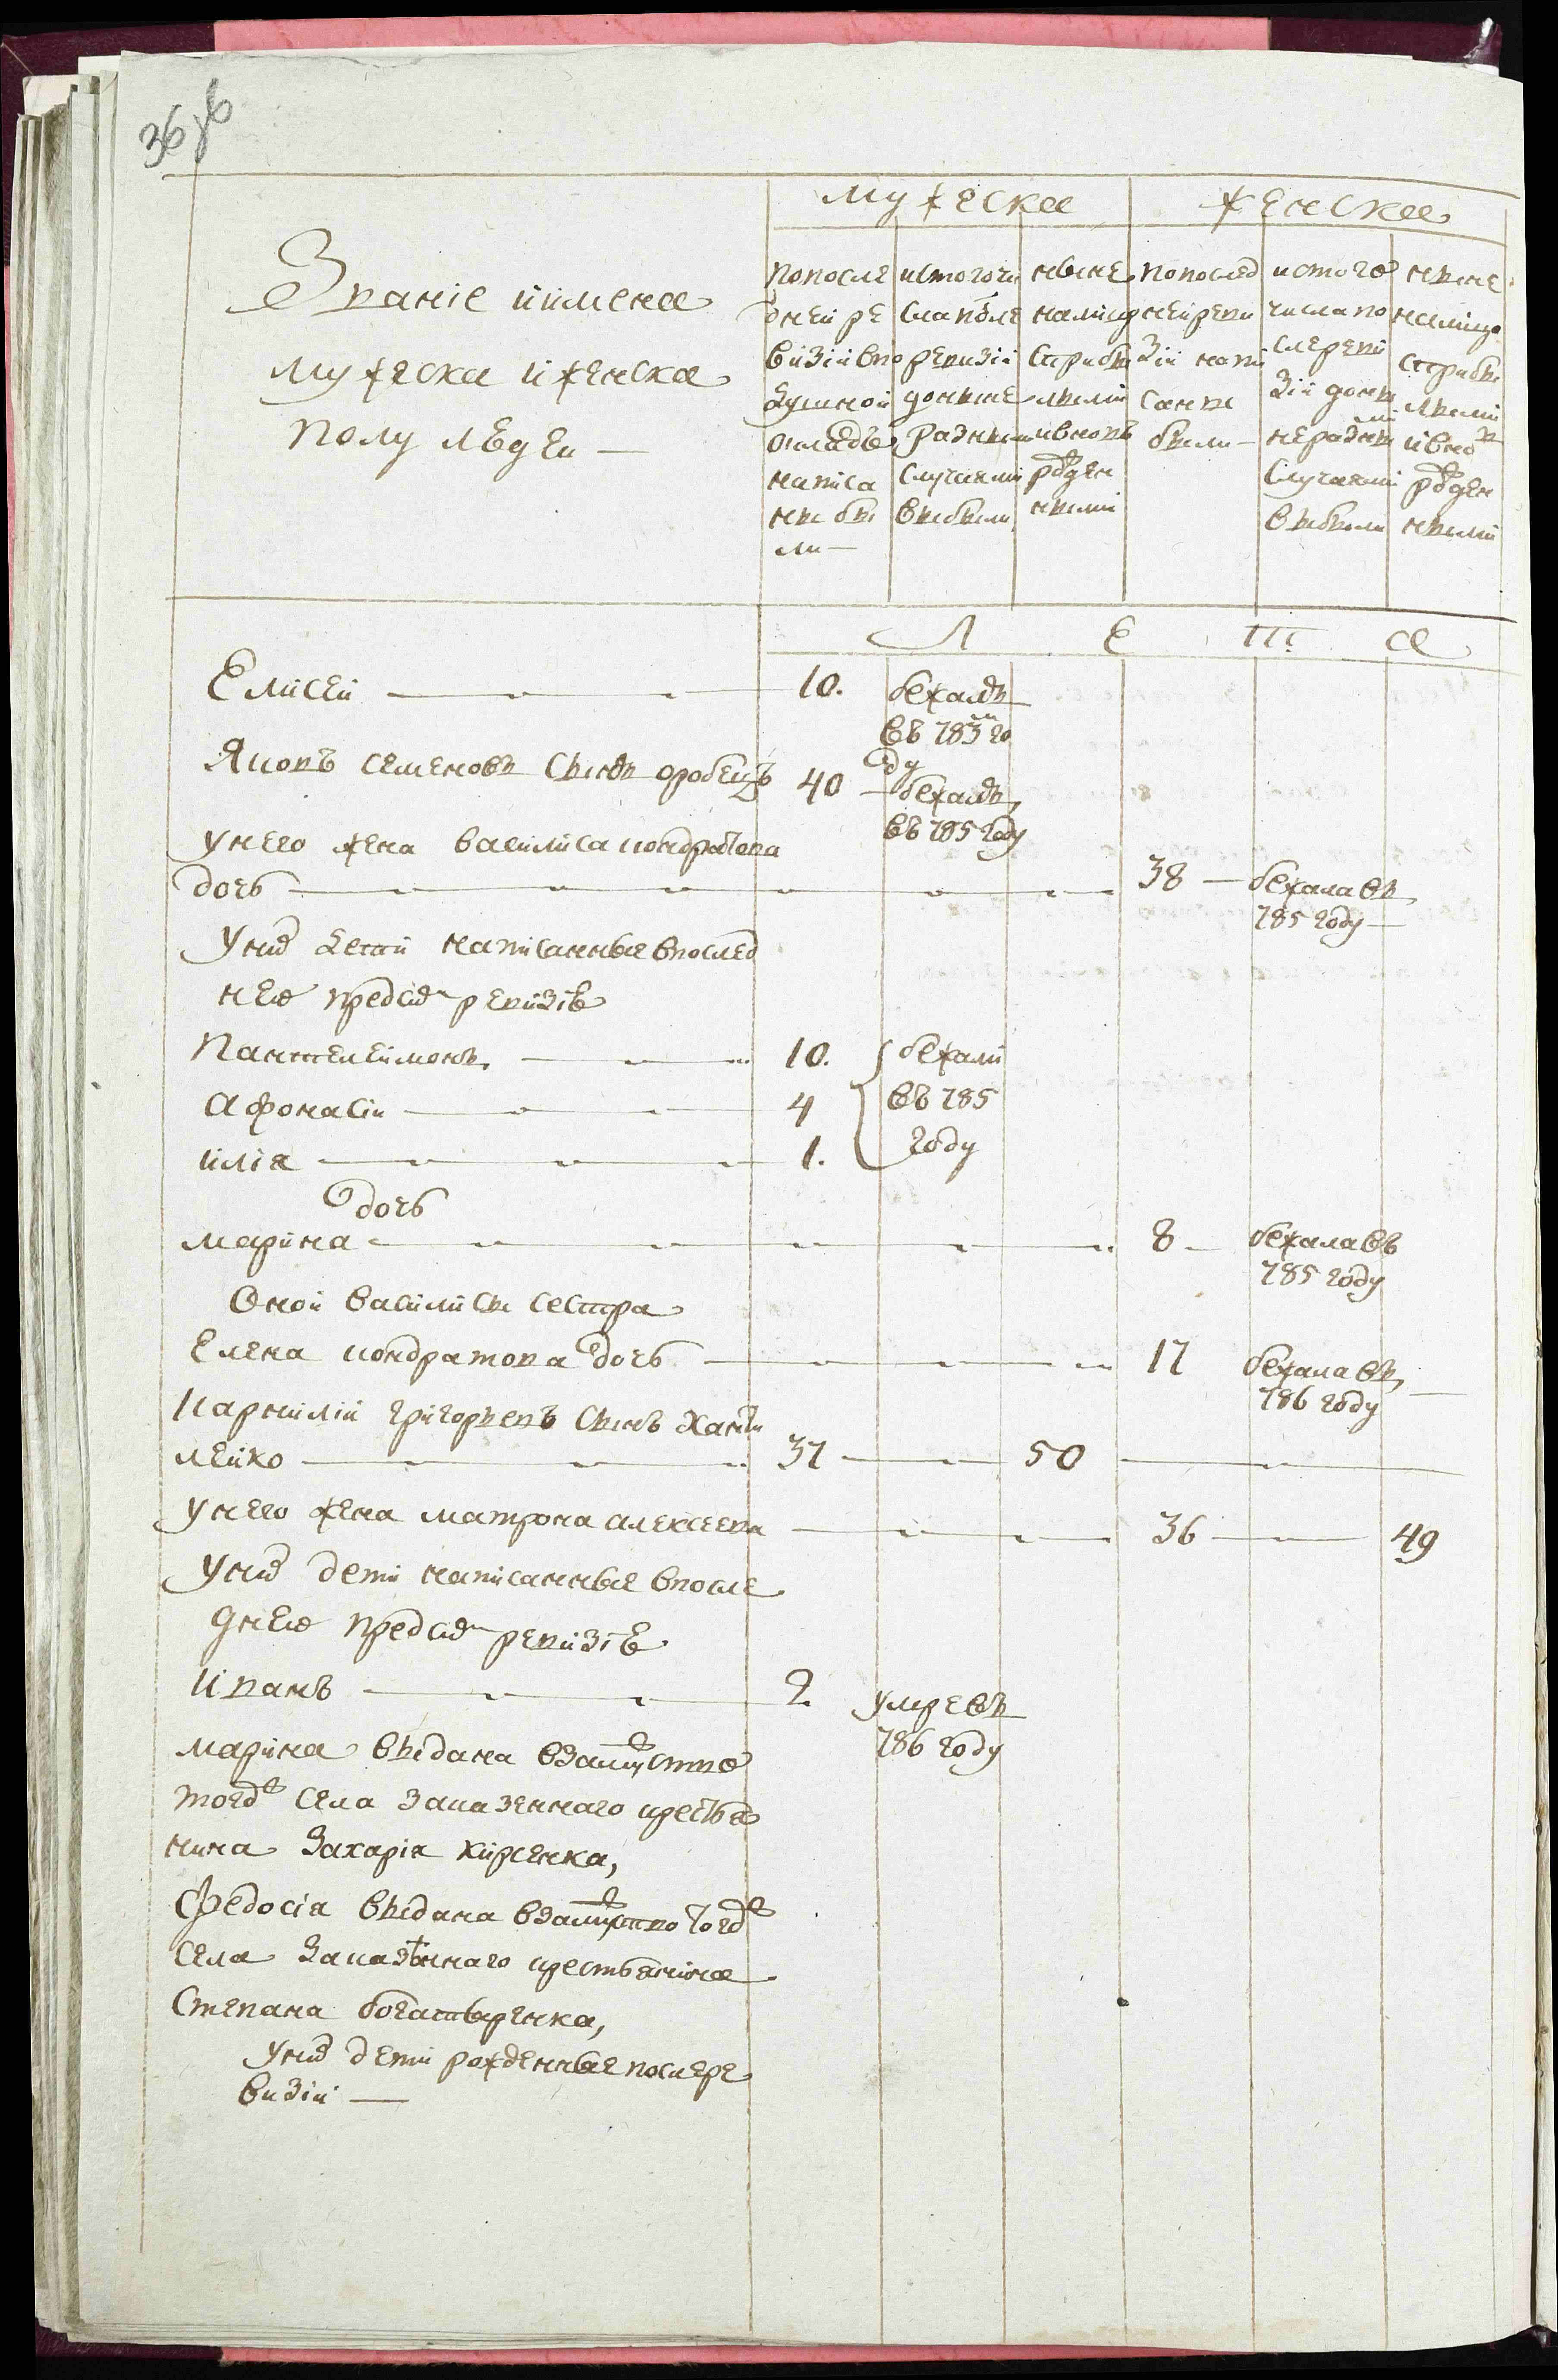 36 об
Званіе и имена
мужеска и женска
полу людеи —
мужеска
женска
по после
дней ре
визіи в по
душной
окладъ
написа
ны бы
ли —
ис того чи
сла после
ревизіи
до ныне
разными
случаями
выбыли
ныне
на лицо
с прибы
лыми
и вновь
рожден
ными
по послед
ней реви
зіи напи
саны
были —
ис того
числа по
сле реви
зіи до ны
не разны
ми
случаями
выбыли
ныне
на лицо
с прибы
лыми
и вновь
рожден
ными
Л е т а
Елисей — 10. бежалъ
въ 783м го
ду
Яковъ семеновъ сынъ оробецъ 40 — бежалъ
въ 785 году
у него жена василиса кондратова
дочь — 38 — бежала въ
785 году —
У них дети написанные в послед
нею пред сим ревизіе
Пантелеимонъ — 10. бежали
Афонасіи — 4 въ 785
илія — 1. году
дочь
марина — 8 — бежала въ
785 году
Оной василисы сестра
Елена кондратова дочь — 17 бежала въ
786 году —
Карнилій григорьевъ сынъ ханъ
лейко — 37 — 50 —
у него жена матрона алексеева — 36 — 49
у них дети написанные в после
днею пред сим ревизіе
Иванъ — 2. умре въ
786 году
марина выдана в замужство
тогож села заказенного крестья
нина Захарія кирсенка,
Федосія выдана в замужство тогож
села заказенного крестьянина
Степана богатыренка,
у них дети рожденные после ре
визіи —